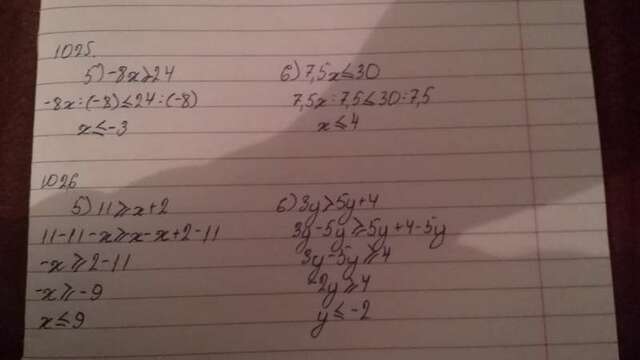 1025.
5) -8x⩾24
-8x:(-8)≤24:(-8)
x≤-3
6) 7,5x≤30
7,5x:7,5≤30:7,5
x≤4
1026
5) 11⩾x+2
11-11-x⩾x-x+2-11
-x⩾2-11
-x⩾-9
x≤9
6) 3y⩾5y+4
3y-5y⩾5y+4-5y
3y-5y⩾4
-2y⩾4
y≤-2